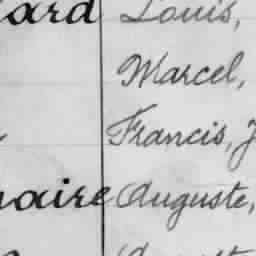 ard Louis,
Marcel,
Francis, J
naire Auguste,